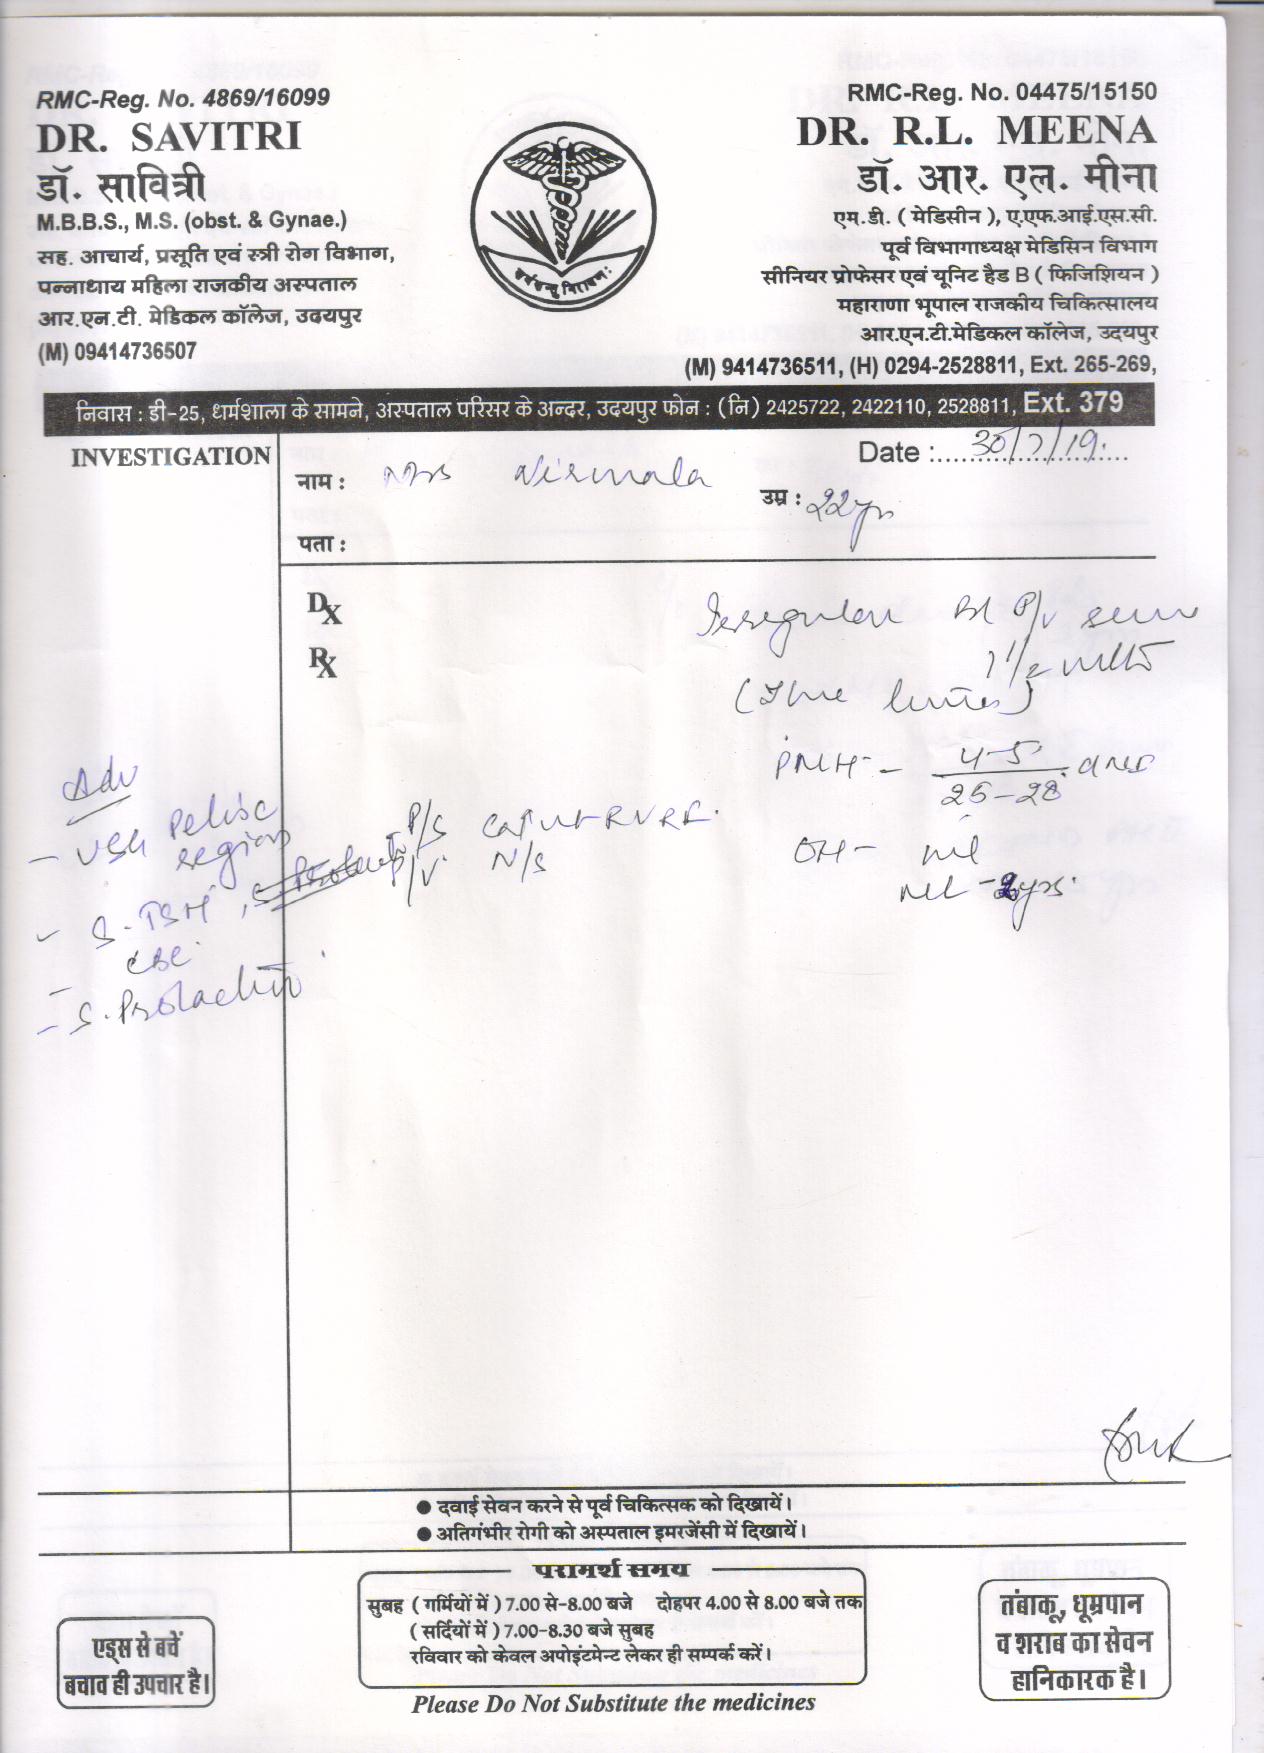 RMC-Reg. No. 4869/16099
DR. SAVITRI
डॉ. सावित्री
M.B.B.S., M.S. (obst. & Gynae.)
सह. आचार्य, प्रसूति एवं स्त्री रोग विभाग,
पन्नाधाय महिला राजकीय अस्पताल
आर.एन.टी. मेडिकल कॉलेज, उदयपुर
(M) 09414736507
सर्वेसन्तु निरामयाः
RMC-Reg. No. 04475/15150
DR. R.L. MEENA
डॉ. आर. एल. मीना
एम.डी. ( मेडिसीन ), ए.एफ.आई.एस.सी.
पूर्व विभागाध्यक्ष मेडिसिन विभाग
सीनियर प्रोफेसर एवं यूनिट हैड B ( फिजिशियन )
महाराणा भूपाल राजकीय चिकित्सालय
आर.एन.टी.मेडिकल कॉलेज, उदयपुर
(M) 9414736511, (H) 0294-2528811, Ext. 265-269,
निवास : डी-25, धर्मशाला के सामने, अस्पताल परिसर के अन्दर, उदयपुर फोन : (नि) 2425722, 2422110, 2528811, Ext. 379
INVESTIGATION
Date : 30/7/19.
नाम : Mrs Nirmala
उम्र : 22yrs
पता :
DX
RX
Irregular Bl P/V
1 1/2
PMH - 4-5/25-28 days
OH - nil
Ml - 2yrs.
P/S
P/V N/S
Adv
- USG Pelvic region
- S. TSH, S. Prolactin
- CBC
- S. Prolactin
● दवाई सेवन करने से पूर्व चिकित्सक को दिखायें।
● अतिगंभीर रोगी को अस्पताल इमरजेंसी में दिखायें।
परामर्श समय
सुबह ( गर्मियों में ) 7.00 से-8.00 बजे दोहपर 4.00 से 8.00 बजे तक
( सर्दियों में ) 7.00-8.30 बजे सुबह
रविवार को केवल अपोइंटमेन्ट लेकर ही सम्पर्क करें।
एड्स से बचें
बचाव ही उपचार है।
तंबाकू, धूम्रपान
व शराब का सेवन
हानिकारक है।
Please Do Not Substitute the medicines